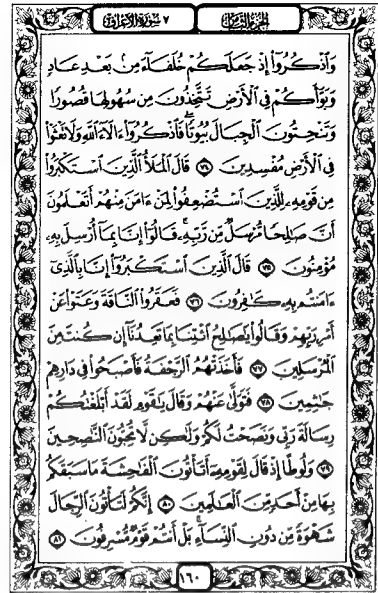 الجزء الثامن ٧ سورة الأعراف
وَاذْكُرُوا إِذْ جَعَلَكُمْ خُلَفَاءَ مِنْ بَعْدِ عَادٍ
وَبَوَّأَكُمْ فِي الْأَرْضِ تَتَّخِذُونَ مِن سُهُولِهَا قُصُورًا
وَتَنْحِتُونَ الْجِبَالَ بُيُوتًا فَاذْكُرُوا ءَالَاءَ اللَّهِ وَلَا تَعْثَوْا
فِي الْأَرْضِ مُفْسِدِينَ ٧٤ قَالَ الْمَلَأُ الَّذِينَ اسْتَكْبَرُوا
مِن قَوْمِهِ لِلَّذِينَ اسْتُضْعِفُوا لِمَنْ ءَامَنَ مِنْهُمْ أَتَعْلَمُونَ
أَنَّ صَالِحًا مُّرْسَلٌ مِّن رَّبِّهِ قَالُوا إِنَّا بِمَا أُرْسِلَ بِهِ
مُؤْمِنُونَ ٧٥ قَالَ الَّذِينَ اسْتَكْبَرُوا إِنَّا بِالَّذِي
ءَامَنتُم بِهِ كَافِرُونَ ٧٦ فَعَقَرُوا النَّاقَةَ وَعَتَوْا عَنْ
أَمْرِ رَبِّهِمْ وَقَالُوا يَاصَالِحُ ائْتِنَا بِمَا تَعِدُنَا إِن كُنتَ مِنَ
الْمُرْسَلِينَ ٧٧ فَأَخَذَتْهُمُ الرَّجْفَةُ فَأَصْبَحُوا فِي دَارِهِمْ
جَاثِمِينَ ٧٨ فَتَوَلَّى عَنْهُمْ وَقَالَ يَاقَوْمِ لَقَدْ أَبْلَغْتُكُمْ
رِسَالَةَ رَبِّي وَنَصَحْتُ لَكُمْ وَلَكِن لَّا تُحِبُّونَ النَّاصِحِينَ
٧٩ وَلُوطًا إِذْ قَالَ لِقَوْمِهِ أَتَأْتُونَ الْفَاحِشَةَ مَا سَبَقَكُم
بِهَا مِنْ أَحَدٍ مِّنَ الْعَالَمِينَ ٨٠ إِنَّكُمْ لَتَأْتُونَ الرِّجَالَ
شَهْوَةً مِّن دُونِ النِّسَاءِ بَلْ أَنتُمْ قَوْمٌ مُّسْرِفُونَ ٨١
١٦٠